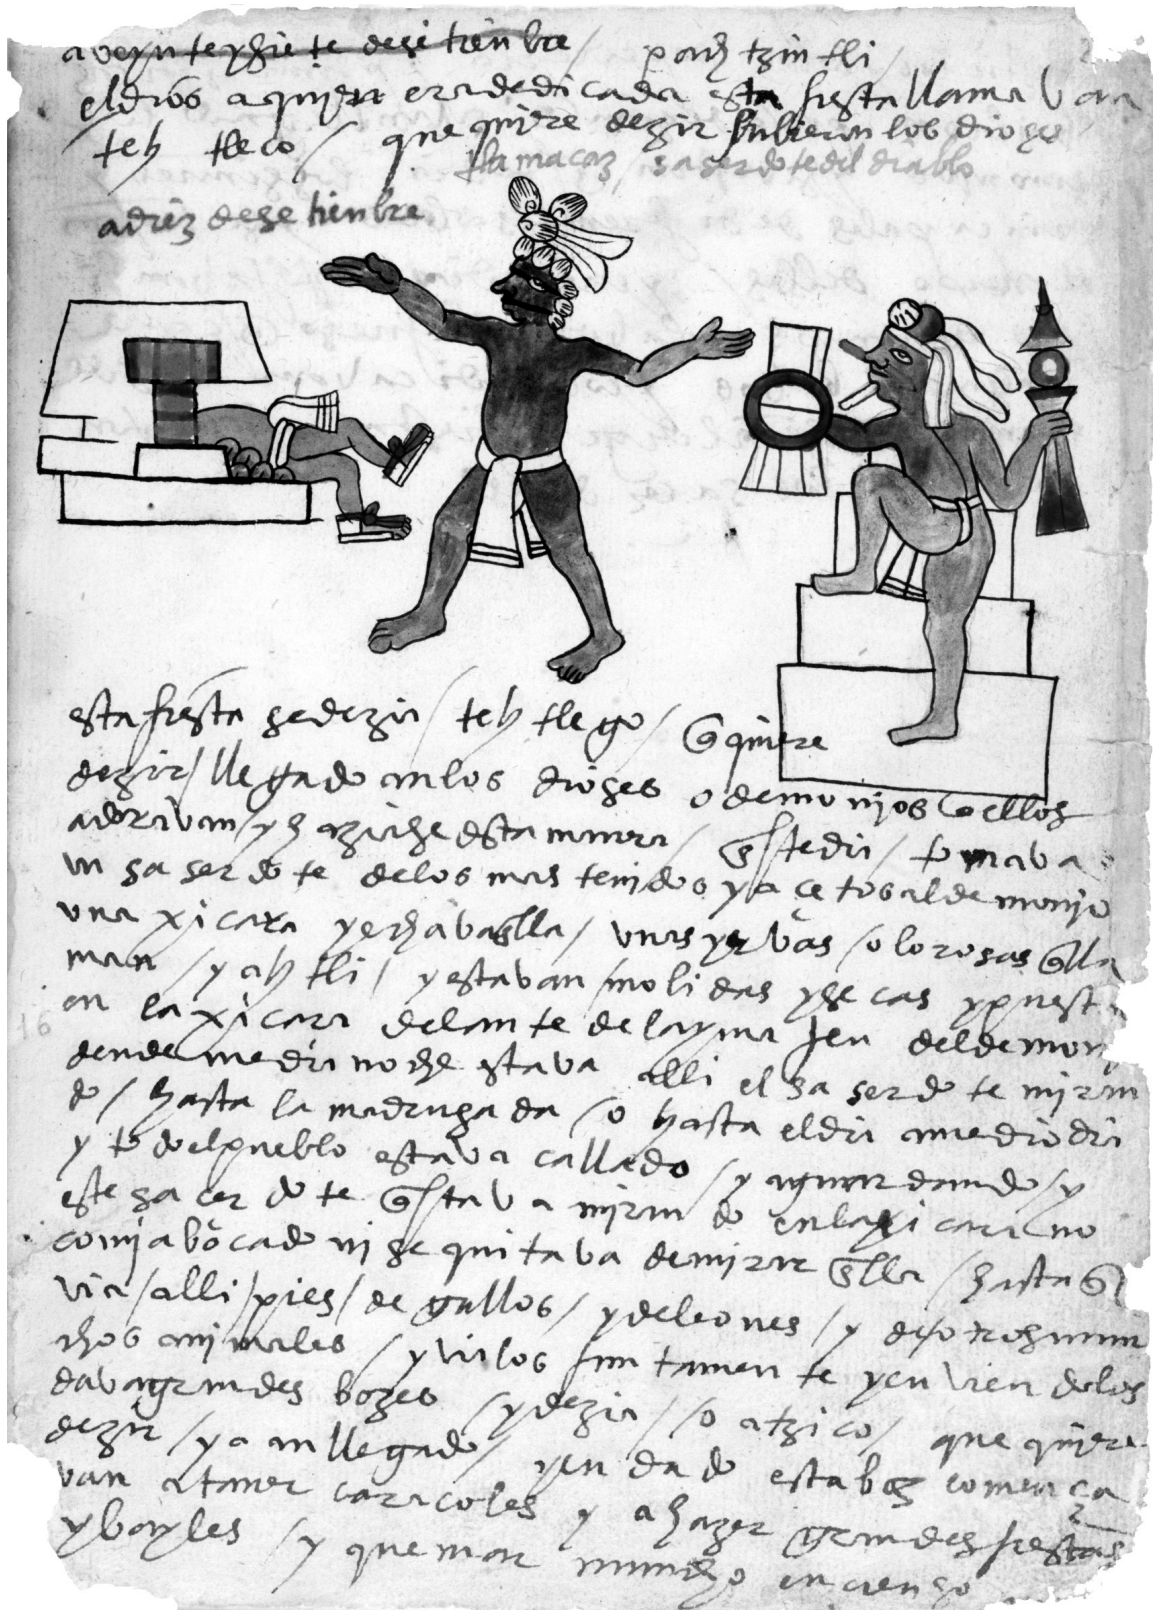 a veynte y siete de setienbre / pachtzintli /
el dios a quien era dedicada esta fiesta llamavan
/ teh tleco / que quiere dezir subieron los dioses
tlamacaz / saserdote del diablo
a diez de setienbre
esta fiesta se dezia / teh tlego / q̃ quiere
dezir / llegado an los dioses o demonios q̃ ellos
adoravan / y haziase desta manera / q̃ este dia / tomava
un saserdote de los mas tenidos y acetos al demonio
una xicara y echava en ella / unas yervas / olorosas q̃ lla
man / yahtli / y estavan molidas y secas y puesta
en la xicara delante de la ymajen del demon
dende media noche estava alli el saserdote miran
do / hasta la madrugada / o hasta el dia a medio dia
y todo el pueblo estava callado / y aguardando / y
este sacerdote q̃ estava mirando en la xicara no
comia bocado ni se quitava de mirar en ella / hasta q̃
via / alli / pies / de gallos / y de leones / y de otros mu
chos animales / y vialos juntamente y en viendolos
dava grandes bozes / y dezia / o atzico / que quiere
dezir / ya an llegado / y en dado esta boz comença
van a taner caracoles y a hazer grandes fiestas
y bayles / y quemar mucho encienso